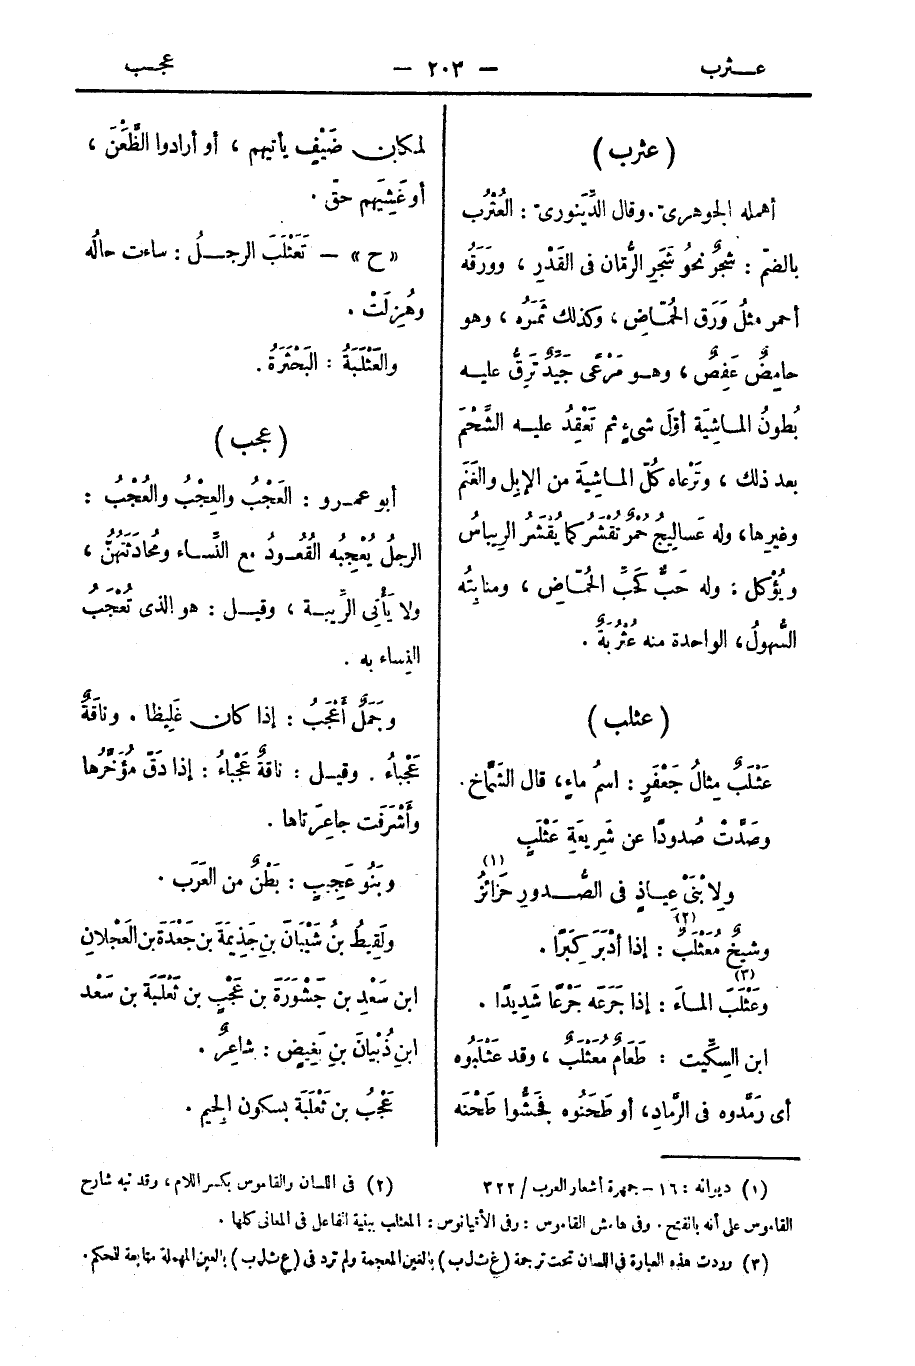 عـــثرب — ٢٠٣ — عجـــب
( عثرب )
أهمله الجوهرىّ. وقال الدِّينورىّ : العُثْرُب
بالضمّ : شجرٌ نحوُ شَجَرِ الرُّمّان فى القَدْرِ ، ووَرَقُه
أحمر مثلُ وَرَق الحُمّاضِ ، وكذلك ثَمَرُه ، وهو
حامِضٌ عَفِصٌ ، وهــو مَرْعًى جَيِّدٌ تَرِقُّ عليــه
بُطونُ المـاشِيَة أوّلَ شىءٍ ثم تَعْقِدُ عليــه الشَّحْمَ
بعد ذلك ، وتَرْعاه كُلّ المـاشِيَة من الإبِل والغَنَم
وغيرِها، وله عَساليجُ حُمرٌ تُقْشَرُ كما يُقْشَرُ الرِيباسُ
ويُؤْكل : وله حَبٌّ كَحَبِّ الحُمّاضِ ، ومنابِتُه
السُّهولُ، الواحدة منه عُثْرُبةٌ .
( عثلب )
عَثْلَبٌ مِثالُ جَعْفَرٍ : اسمُ ماءٍ، قال الشَّمّاخ.
وصَدَّتْ صُدودًا عن شَرِيعَةِ عَثْلَبٍ
ولِابْنَىْ عِيـاذٍ فى الصُّـــدورِ حَزائزُ (١)
وشيخٌ مُعَثْلَبٌ (٢) : إذا أدْبَرَ كِبَرًا .
وعَثْلَبَ المـاءَ (٣) : إذا جَرَعَه جَرْعًا شَدِيدًا .
ابن السِكِّيت : طَعامٌ مُعَثْلَبٌ ، وقد عَثْلَبُوه
أى رَمَّدوه فى الرَّمادِ، أو طَحَنُوه فجَشُّوا طَحْنَه
لمكان ضَيْفٍ يأتيهم ، أو أرادوا الظَّعْنَ ،
أو غَشِيَهم حقّ .
« ح » — تَعَثْلَبَ الرجــلُ : ساءت حالُه
وهُزِلَتْ .
والعَثْلَبَةُ : البَحْثَرَةُ .
( عجب )
أبو عمــرو : العَجْبُ والعِجْبُ والعُجْبُ :
الرجلُ يُعْجِبُه القُعُــودُ مع النِّســاء ومُحادَثَتُهُنّ ،
ولا يَأْتِى الرِّيبــة ، وقيــل : هو الذى تُعْجَبُ
النِساء به .
وجَمَلٌ أَعْجَبُ : إذا كان غَلِيظا . وناقَةٌ
عَجْباءُ . وقيــل : ناقةٌ عَجْباءُ : إذا دَقّ مؤَخَّرُها
وأَشْرَفَت جاعِرَتاها .
وبَنُو عَجِيبٍ : بَطْنٌ من العَرَب .
ولَقِيطُ بنُ شَيْبانَ بنِ جَذِيمَةَ بن جَعْدَة بن العَجْلانِ
ابن سَعْدِ بن جَشْوَرَةَ بن عَجْبِ بن ثَعْلَبَة بن سَعْد
ابنِ ذُبْيانَ بنِ بَغِيضٍ : شاعِرٌ .
عَجْبُ بن ثَعْلَبَة بسكون الجيم .
(١) ديرانه : ١٦ – جمهرة أشعار العرب / ٣٢٢ (٢) فى اللسان والقاموس بكسر اللام، وقد نبه شارح
القاموس على أنه بالفتح. وفى هامش القاموس : وفى الأقيانوس : المعثلب ببنية الفاعل فى المعانى كلها .
(٣) وردت هذه العبارة فى اللسان تحت ترجمة (غ ث ل ب) بالغين المعجمة ولم ترد فى (ع ث ل ب) بالعين المهملة متابعة للمحكم .